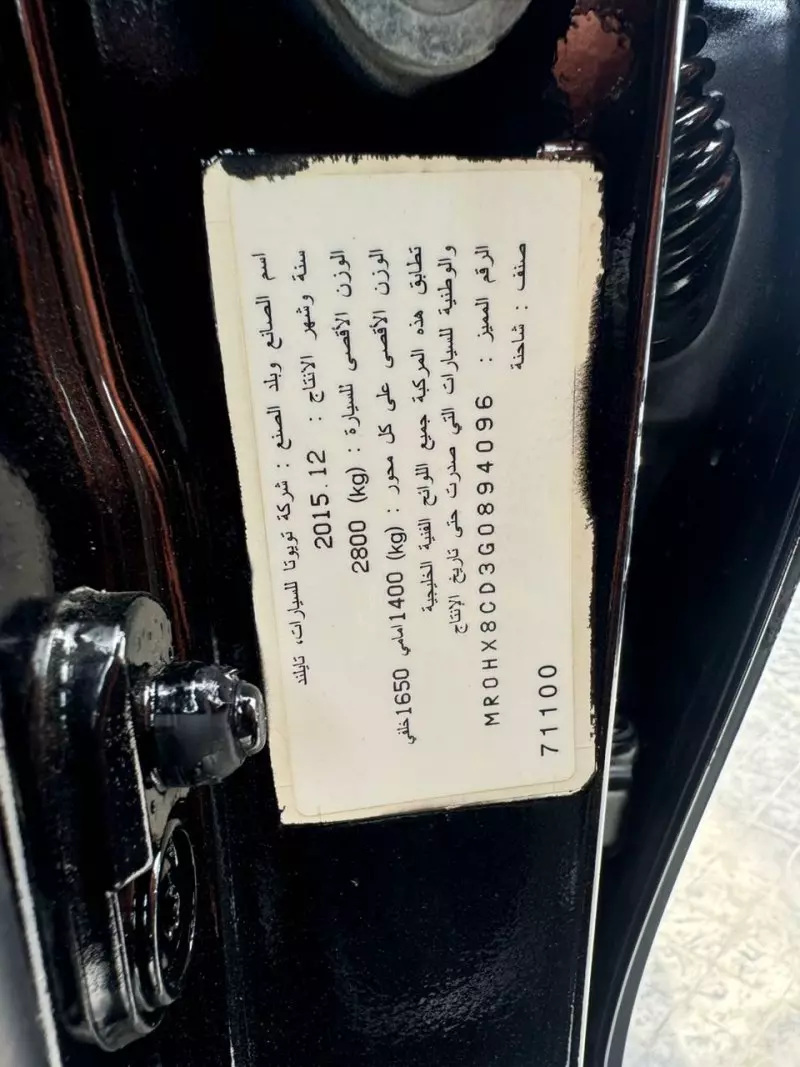 اسم الصانع وبلد الصنع : شركة تويوتا للسيارات، تايلند
سنة وشهر الانتاج : 2015.12
الوزن الأقصى للسيارة : (kg) 2800
الوزن الأقصى على كل محور : (kg) 1400امامي 1650خلفي
تطابق هذه المركبة جميع اللوائح الفنية الخليجية
والوطنية للسيارات التي صدرت حتى تاريخ الإنتاج
الرقم المميز : MR0HX8CD3G0894096
صنف : شاحنة
71100